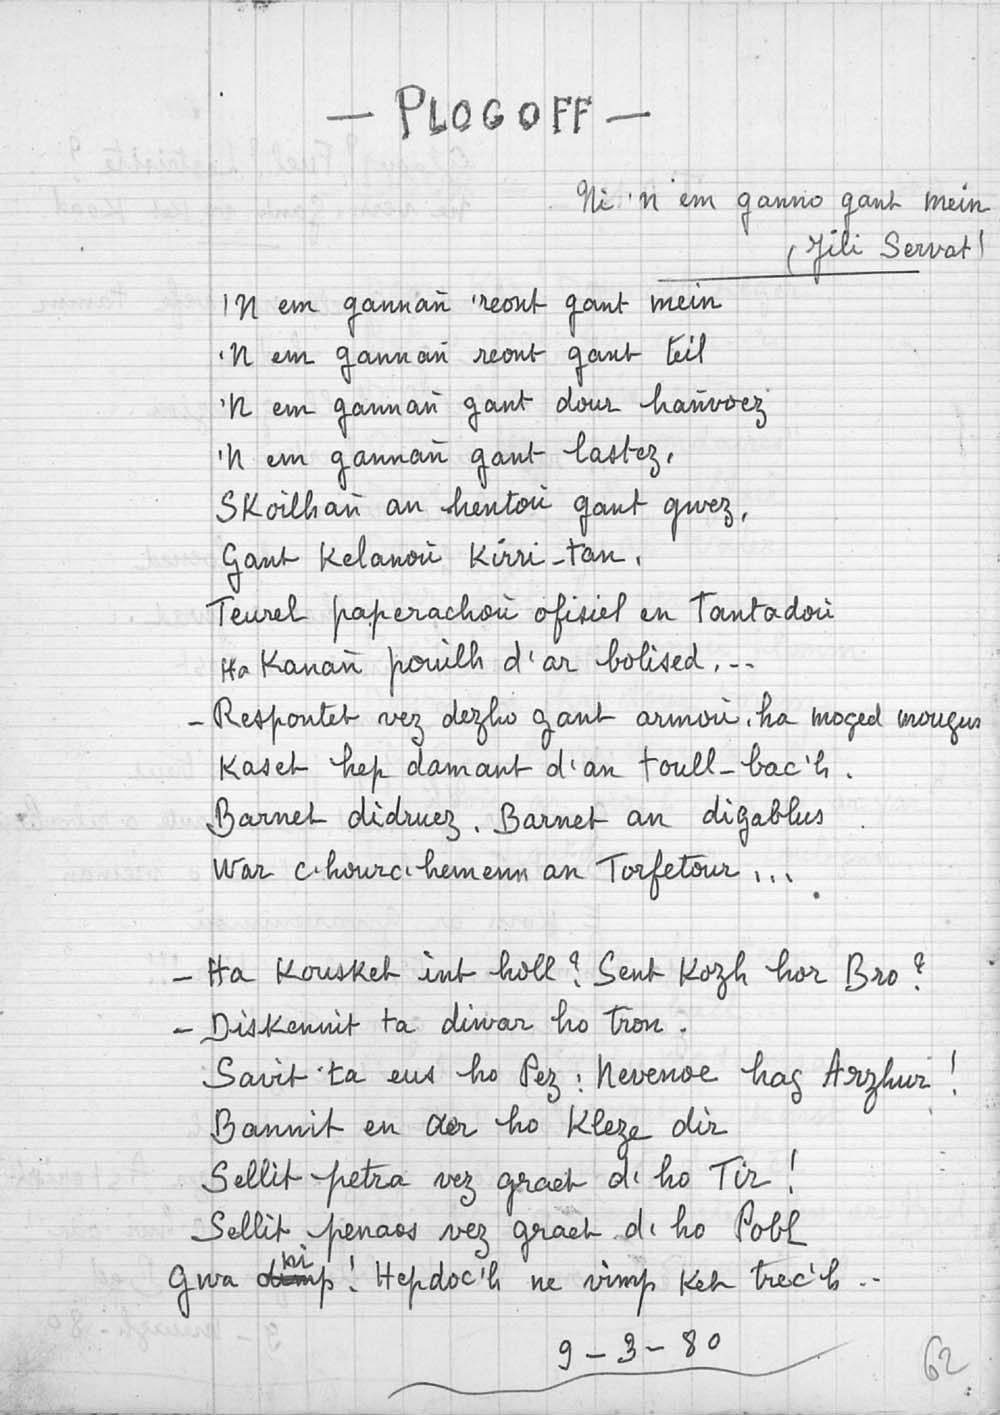 — PLOGOFF —
Ni 'n em ganno gant mein
(Jili Servat)
'N em gannañ 'reont gant mein
'N em gannañ reont gant teil
'N em gannañ gant dour hañvoez
'N em gannañ gant lastez,
Skoilhañ an hentoù gant gwez,
Gant Kelanoù Kirri-tan,
Teurel paperachoù ofisiel en Tantadoù
Ha Kanañ pouilh d'ar bolised...
- Respontet vez dezho gant armoù, ha moged mougus
Kaset hep damant d'an toull-bac'h.
Barnet didruez. Barnet an digablus
War c'hourc'hemenn an Torfetour...
- Ha Kousket int holl? Sent Kozh hor Bro?
- Diskennit ta diwar ho tron.
Savit 'ta eus ho Pez: Nevenoe hag Arzhur!
Bannit en aer ho Kleze dir
Sellit petra vez graet d'ho Tir!
Sellit penaos vez graet d'ho Pobl
Gwa ni! Hepdoc'h ne vimp Ket trec'h..
9-3-80
62